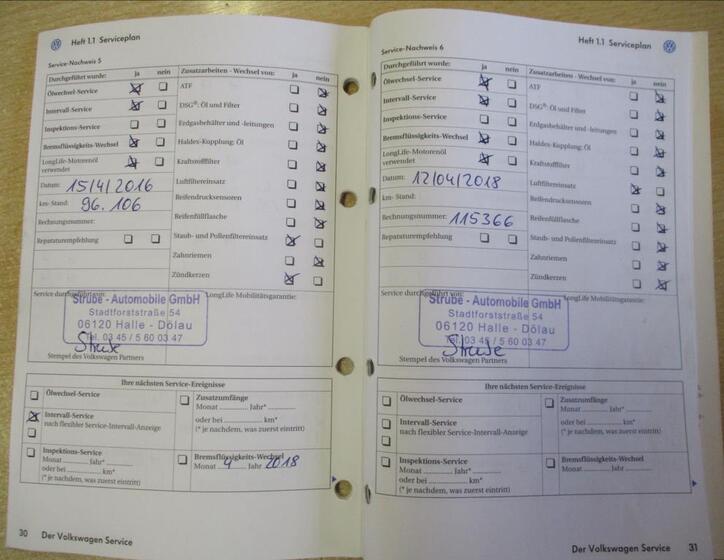 Heft 1.1 Serviceplan
Service-Nachweis 5
Durchgeführt wurde: ja nein
Zusatzarbeiten - Wechsel von: ja nein
Ölwechsel-Service
Intervall-Service
Inspektions-Service
Bremsflüssigkeits-Wechsel
LongLife-Motorenöl
verwendet
Datum: 15/4/2016
km- Stand: 96.106
Rechnungsnummer:
Reparaturempfehlung
ATF
DSG®: Öl und Filter
Erdgasbehälter und -leitungen
Haldex-Kupplung: Öl
Kraftstofffilter
Luftfiltereinsatz
Reifendrucksensoren
Reifenfüllflasche
Staub- und Pollenfiltereinsatz
Zahnriemen
Zündkerzen
Service durchgeführt von:
LongLife Mobilitätsgarantie:
Strube - Automobile GmbH
Stadtforststraße 54
06120 Halle - Dölau
Tel. 03 45 / 5 60 03 47
Strube
Stempel des Volkswagen Partners
Ihre nächsten Service-Ereignisse
Ölwechsel-Service
Intervall-Service
nach flexibler Service-Intervall-Anzeige
Inspektions-Service
Monat ........... Jahr*...........
oder bei ........... km*
(* je nachdem, was zuerst eintritt)
Zusatzumfänge
Monat ........... Jahr*...........
oder bei ........... km*
(* je nachdem, was zuerst eintritt)
Bremsflüssigkeits-Wechsel
Monat 4 Jahr 2018
30 Der Volkswagen Service
Heft 1.1 Serviceplan
Service-Nachweis 6
Durchgeführt wurde: ja nein
Zusatzarbeiten - Wechsel von: ja nein
Ölwechsel-Service
Intervall-Service
Inspektions-Service
Bremsflüssigkeits-Wechsel
LongLife-Motorenöl
verwendet
Datum: 12/04/2018
km- Stand:
Rechnungsnummer: 115366
Reparaturempfehlung
ATF
DSG®: Öl und Filter
Erdgasbehälter und -leitungen
Haldex-Kupplung: Öl
Kraftstofffilter
Luftfiltereinsatz
Reifendrucksensoren
Reifenfüllflasche
Staub- und Pollenfiltereinsatz
Zahnriemen
Zündkerzen
Service durchgeführt von:
LongLife Mobilitätsgarantie:
Strube - Automobile GmbH
Stadtforststraße 54
06120 Halle - Dölau
Tel. 03 45 / 5 60 03 47
Strube
Stempel des Volkswagen Partners
Ihre nächsten Service-Ereignisse
Ölwechsel-Service
Intervall-Service
nach flexibler Service-Intervall-Anzeige
Inspektions-Service
Monat ........... Jahr*...........
oder bei ........... km*
(* je nachdem, was zuerst eintritt)
Zusatzumfänge
Monat ........... Jahr*...........
oder bei ........... km*
(* je nachdem, was zuerst eintritt)
Bremsflüssigkeits-Wechsel
Monat ........... Jahr ...........
Der Volkswagen Service 31